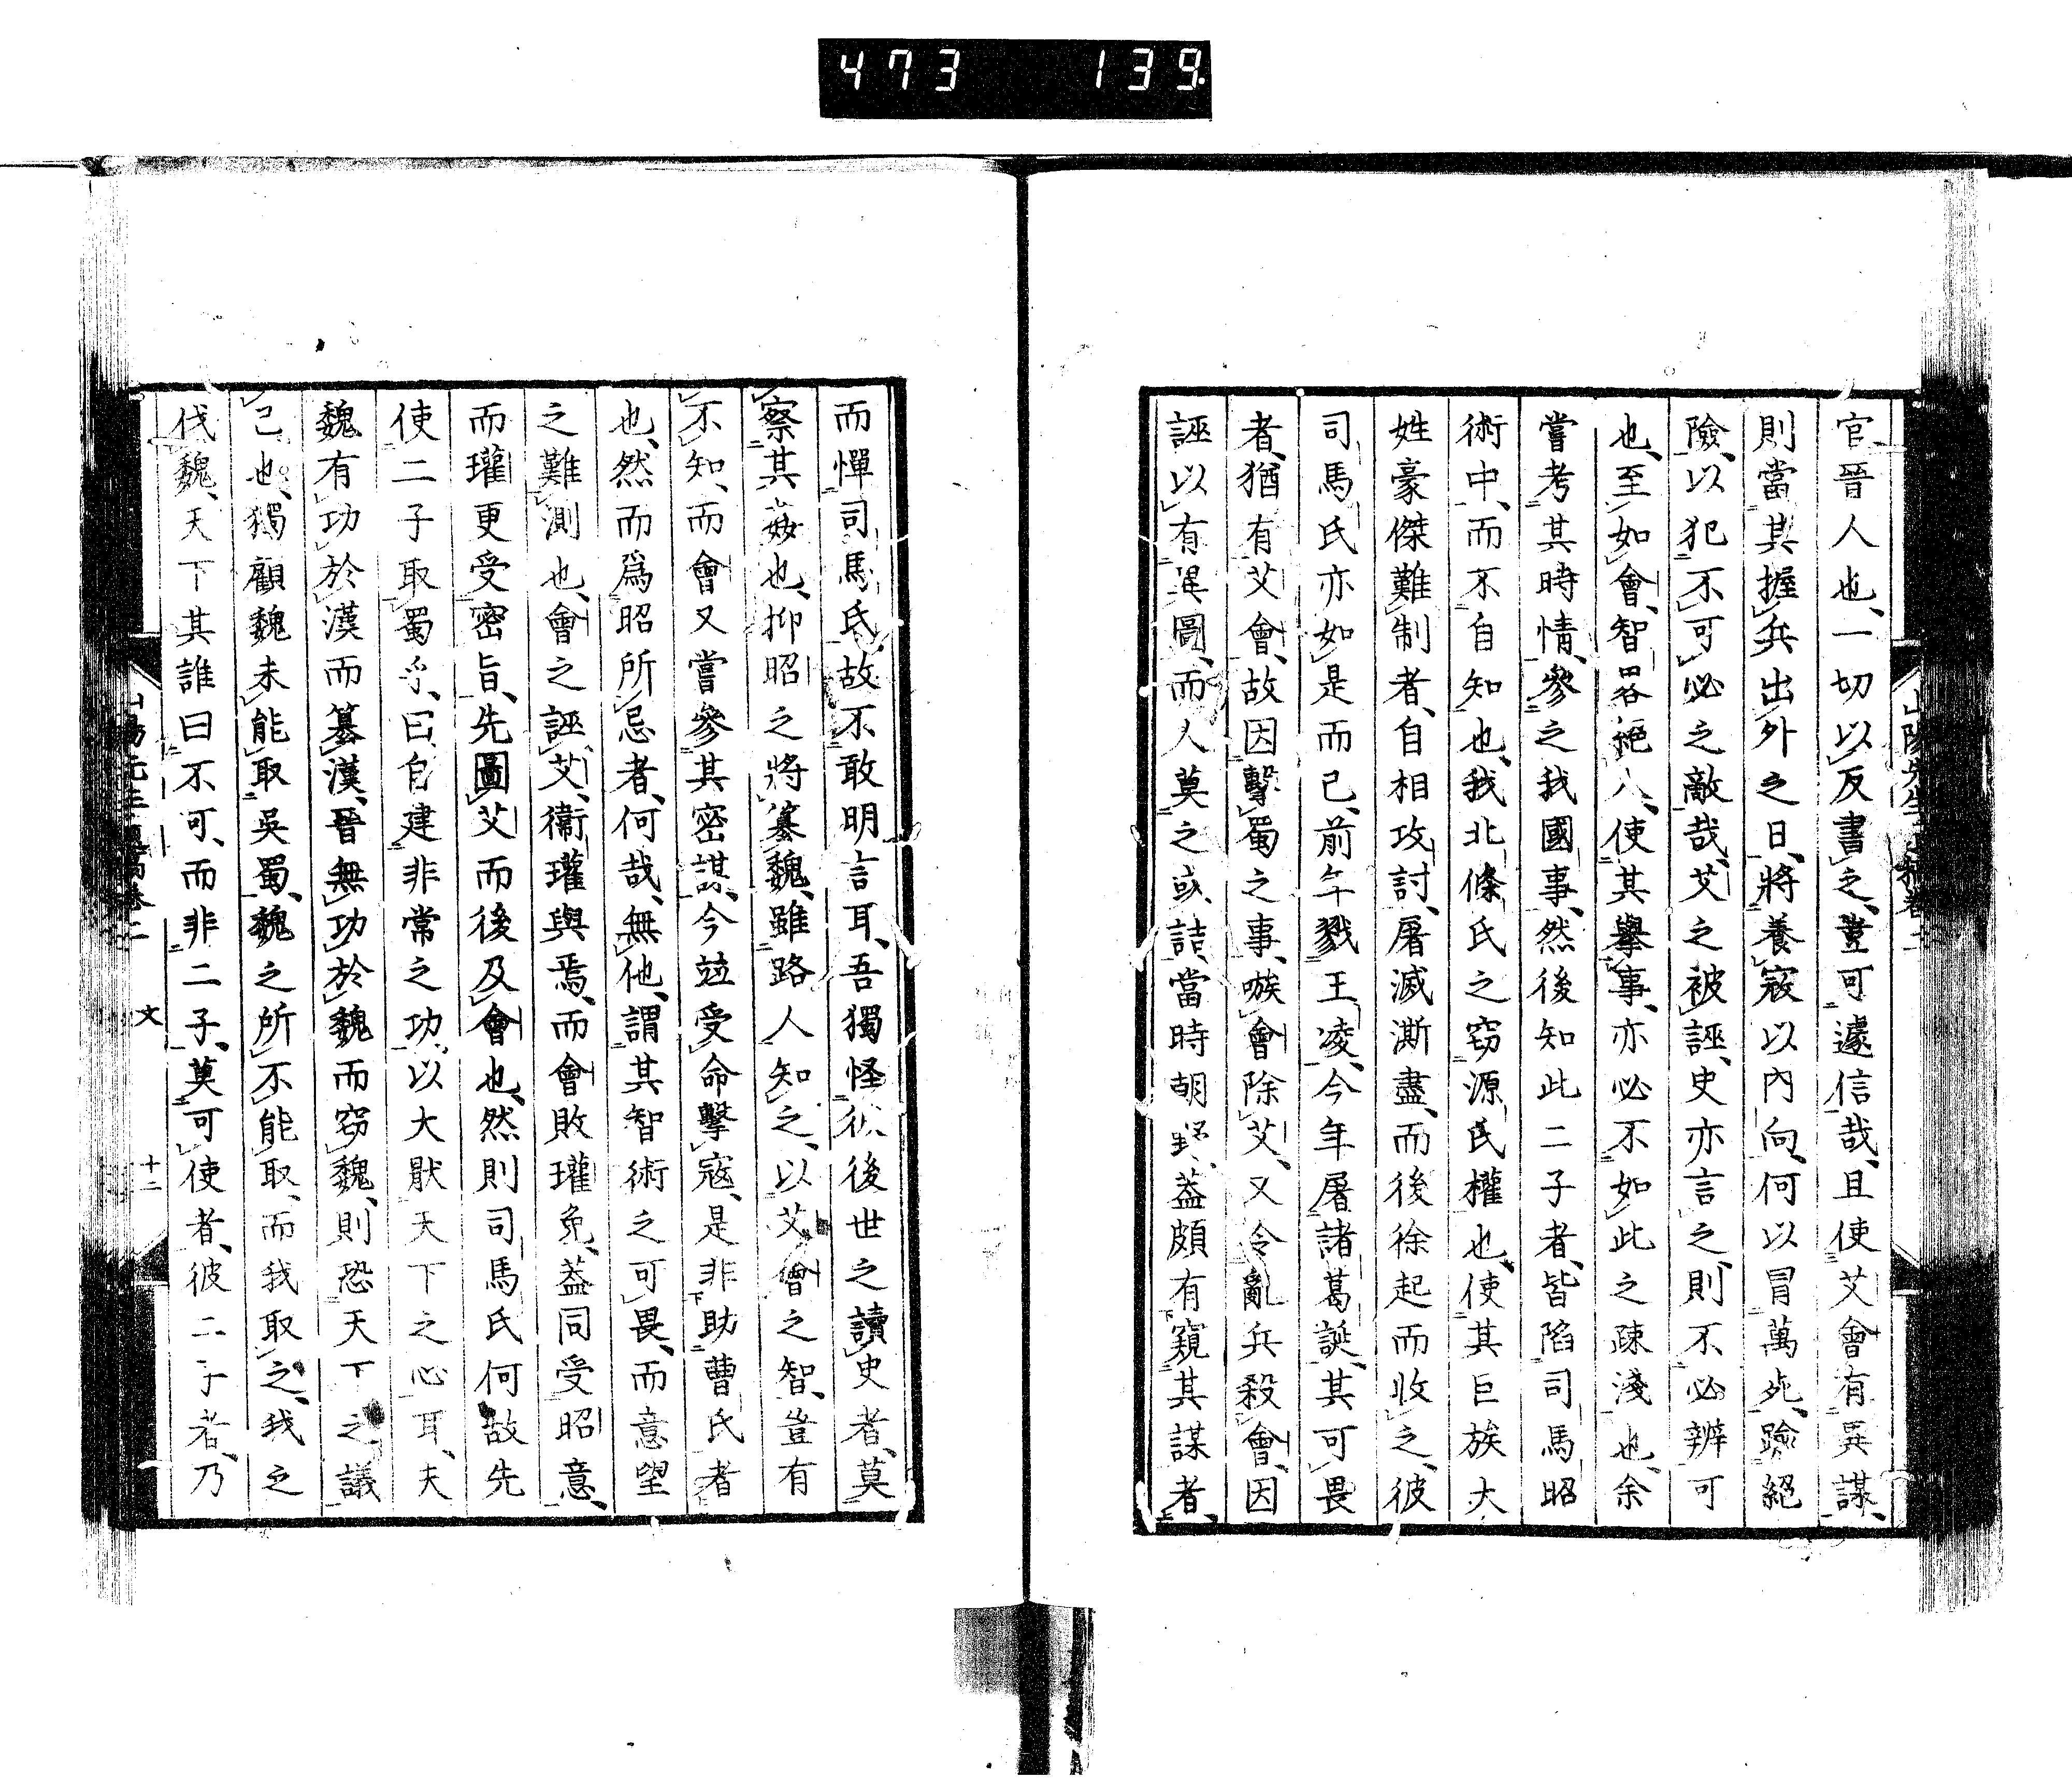 473 139
官晉人也、一切以反書之、豈可遽信哉、且使艾會有異謀、
則當其握兵出外之日、將養寇以內向、何以冒萬死、踰絕
險、以犯不可必之敵哉、艾之被誣、史亦言之、則不必辨可
也、至如會、智畧絕人、使其舉事、亦必不如此之疎淺也、余
嘗考其時情、參之我國事、然後知此二子者、皆陷司馬昭
術中、而不自知也、我北條氏之窃源氏權也、使其巨族大
姓豪傑難制者、自相攻討、屠滅澌盡、而後徐起而收之、彼
司馬氏亦如是而已、前年戮王凌、今年屠諸葛誕、其可畏
者、猶有艾會、故因擊蜀之事、嗾會除艾、又令亂兵殺會、因
誣以有異圖、而人莫之或詰、當時朝野、葢頗有窺其謀者、
而憚司馬氏、故不敢明言耳、吾獨怪彼後世之讀史者、莫
察其姦也、抑昭之將篡魏、雖路人知之、以艾會之智、豈有
不知、而會又嘗參其密謀、今竝受命擊寇、是非助曹氏者
也、然而爲昭所忌者、何哉、無他、謂其智術之可畏、而意望
之難測也、會之誣艾、衞瓘與焉、而會敗瓘免、葢同受昭意、
而瓘更受密旨、先圖艾而後及會也、然則司馬氏何故先
使二子取蜀乎、曰、自建非常之功、以大厭天下之心耳、夫
魏有功於漢而篡漢、晉無功於魏而窃魏、則恐天下之議
己也、獨顧魏未能取吳蜀、魏之所不能取、而我取之、我之
伐魏、天下其誰曰不可、而非二子、莫可使者、彼二子者、乃
文 十二